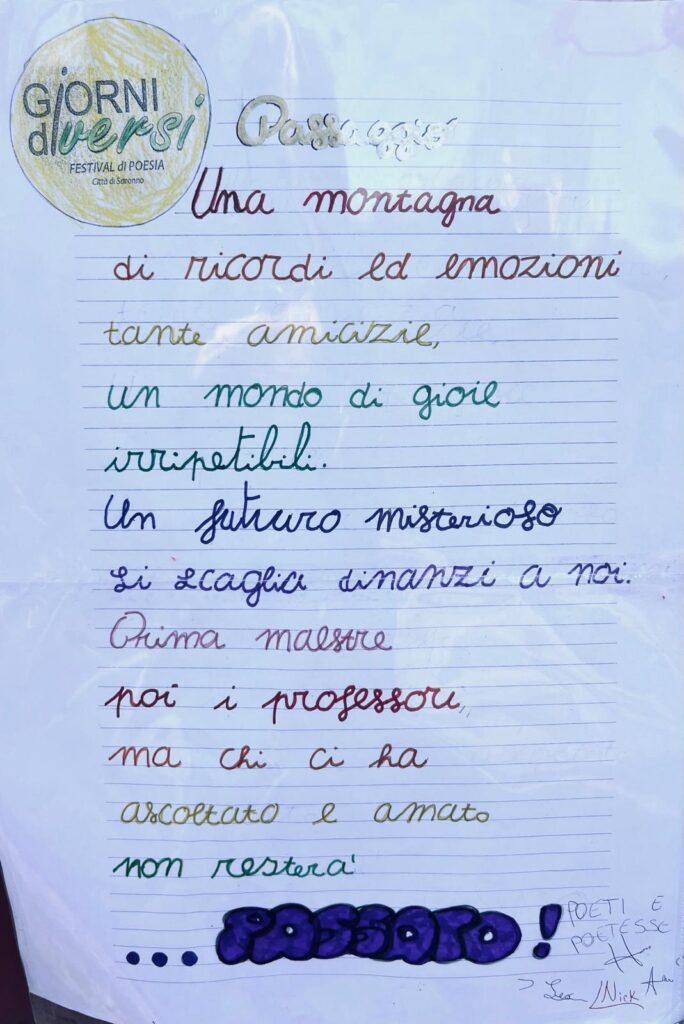 GiORNI
diversi
FESTIVAL di POESIA
Città di Saronno
Passaggi
Una montagna
di ricordi ed emozioni
tante amicizie,
un mondo di gioie
irripetibili.
Un futuro misterioso
si scaglia dinanzi a noi.
Prima maestre
poi i professori,
ma chi ci ha
ascoltato e amato
non resterà
...PASSATO!
POETI E
POETESSE
Nick